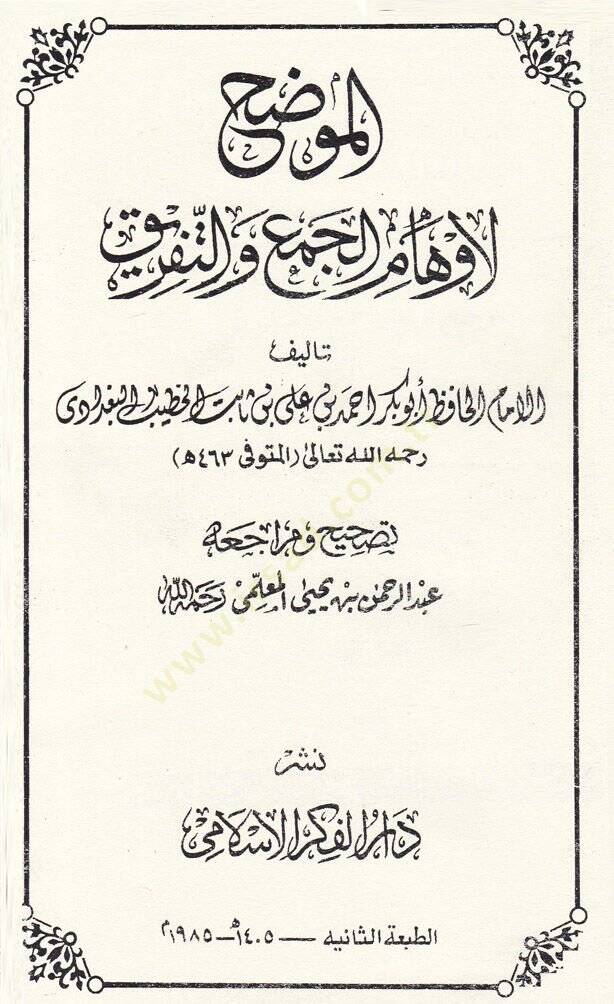 الموضح
لأوهام الجمع والتفريق
تاليف
الامام الحافظ أبو بكر احمد بن على بن ثابت الخطيب البغدادى
رحمه الله تعالىٰ (المتوفى ٤٦٣ھ)
تصحيح ومراجعه
عبد الرحمن بن يحيىٰ المعلمى رحمه الله
نشر
دار الفكر الاسلامى
الطبعة الثانيه — ١٤٠٥ھ — ١٩٨٥م